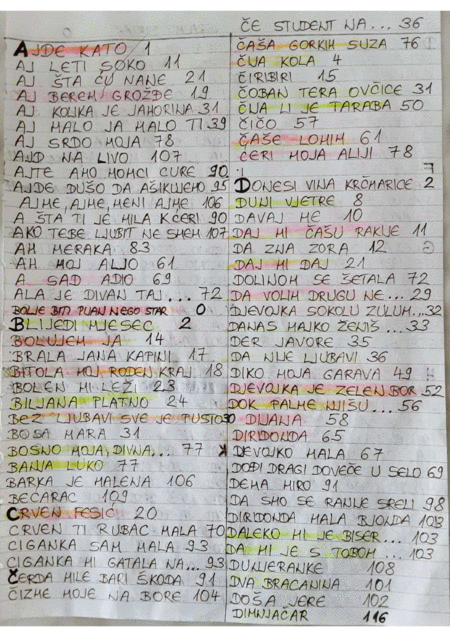 AJDE KATO 1
AJ LETI SOKO 11
AJ ŠTA ĆU NANE 21
AJ BEREM GROŽĐE 19
AJ KOLIKA JE JAHORINA 31
AJ MALO JA MALO TI 39
AJ SRDO MOJA 78
AJD NA LIVO 107
AJTE AMO MOMCI CURE 90
AJDE DUŠO DA AŠIKUJEMO 95
AJME, AJME, MENI AJME 106
A ŠTA TI JE MILA KĆERI 90
AKO TEBE LJUBIT NE SMEM 107
AH MERAKA 83
AH MOJ ALJO 61
A SAD ADIO 69
ALA JE DIVAN TAJ... 72
BOLJE BITI PIJAN NEGO STAR 0
BLIJEDI MJESEC 2
BOLUJEM JA 14
BRALA JANA KAPINI 17
BITOLA MOJ RODEN KRAJ 18
BOLEN MI LEŽI 23
BILJANA PLATNO 24
BEZ LJUBAVI SVE JE PUSTO 30
BOSA MARA 31
BOSNO MOJA, DIVNA... 77
BANJA LUKO 77
BARKA JE MALENA 106
BEĆARAC 109
CRVEN FESIĆ 20
CRVEN TI RUBAC MALA 70
CIGANKA SAM MALA 93
CIGANKA MI GATALA NA... 93
ČERDA MILE DARI ŠKODA 91
ČIZME MOJE NA BORE 104
ČE STUDENT NA... 36
ČAŠA GORKIH SUZA 76
ČIJA KOLA 4
ĆIRIBIRI 15
ČOBAN TERA OVČICE 31
ČIJA LI JE TARABA 50
ČIČO 57
ČAŠE LOMIM 61
ĆERI MOJA ALIJI 78
DONESI VINA KRČMARICE 2
DUNI VJETRE 8
DAVAJ ME 10
DAJ MI ČAŠU RAKIJE 11
DA ZNA ZORA 12
DAJ MI DAJ 21
DOLINOM SE ŠETALA 72
DA VOLIM DRUGU NE... 29
DJEVOJKA SOKOLU ZULUM... 32
DANAS MAJKO ŽENIŠ... 33
DER JAVORE 35
DA NIJE LJUBAVI 36
DIKO MOJA GARAVA 49
DJEVOJKA JE ZELEN BOR 52
DOK PALME NJIŠU... 56
DIJANA 58
DIRIDONDA 65
DEVOJKO MALA 67
DOĐI DRAGI DOVEČE U SELO 69
DEMA MIRO 91
DA SMO SE RANIJE SRELI 98
DIRIDONDA MALA BJONDA 103
DALEKO MI JE BISER... 103
DA MI JE S TOBOM... 103
DUNJERANKE 108
DVA BRAĆANINA 101
DOŠA JERE 102
DIMNJAČAR 116